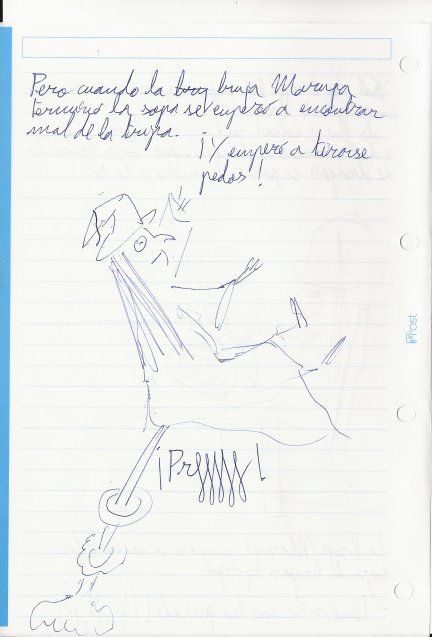 Pero cuando la bruj bruja Maruja
terminó la sopa se empezó a encontrar
mal de la tripa.
¡Y empezó a tirarse
pedos!
¡Prfffff!